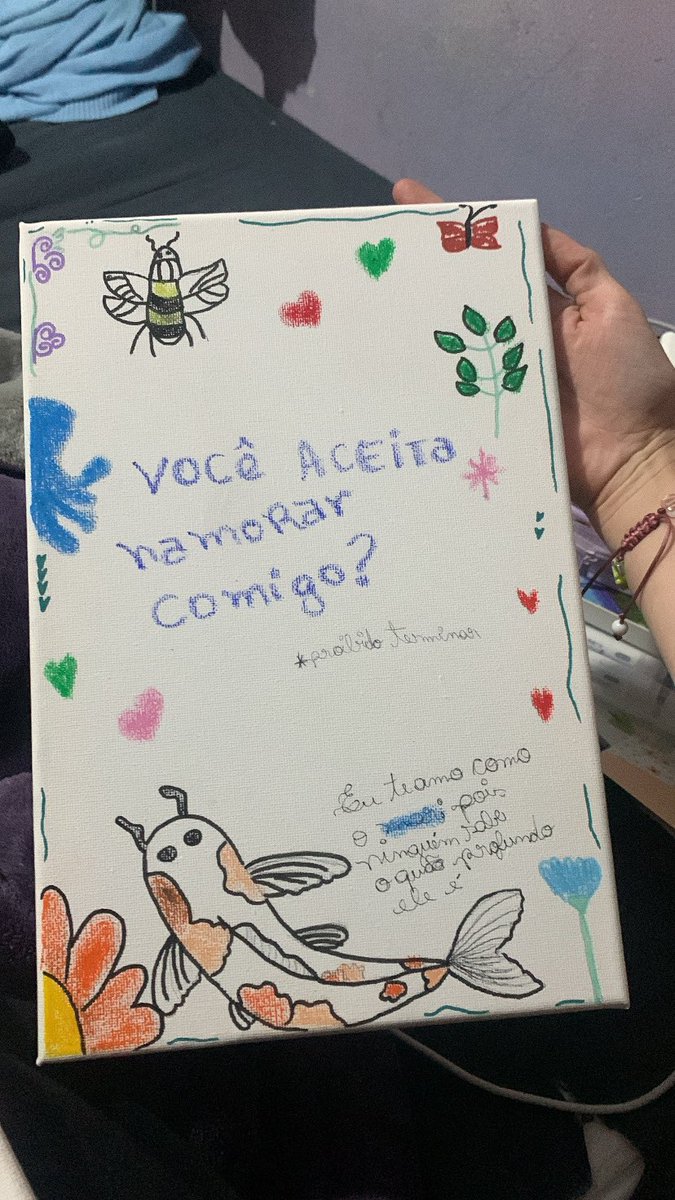 VOCÊ ACEITA
namoRar
comigo?
*proibido terminar
Eu te amo como
o mar pois
ninguém sabe
o quão profundo
ele é